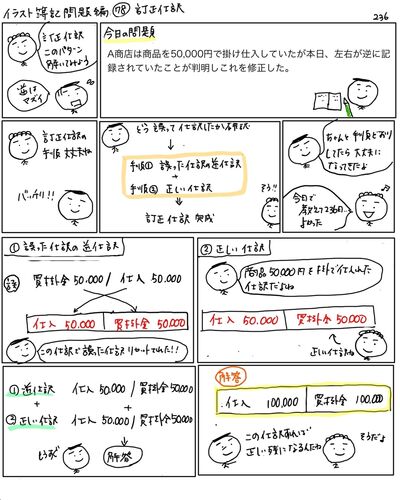 イラスト簿記問題編 78 訂正仕訳
236
訂正仕訳
このパターン
解いてみよう
逆は
マズイ
今日の問題
A商店は商品を50,000円で掛け仕入していたが本日、左右が逆に記
録されていたことが判明しこれを修正した。
訂正仕訳の
手順大丈夫ね
バッチリ!!
どう誤って仕訳したか確認
手順① 誤った仕訳の逆仕訳
+
手順② 正しい仕訳
訂正仕訳 完成
そう!!
ちゃんと手順どおり
してたら大丈夫に
なってきたよ
今日で
教えて236日..
よかった
① 誤った仕訳の逆仕訳
誤 買掛金 50.000 / 仕入 50.000
仕入 50.000 買掛金 50.000
この仕訳で誤った仕訳リセットでれた!!
② 正しい仕訳
商品50000円を掛けで仕入れた
仕訳だよね
仕入 50.000 買掛金 50.000
正しい仕訳ね
① 逆仕訳 仕入 50.000 / 買掛金 50.000
+ +
② 正しい仕訳 仕入 50.000 / 買掛金 50.000
解答
解答
仕入 100,000 買掛金 100,000
この仕訳すれば
正しい残になるんだね
そうだよ